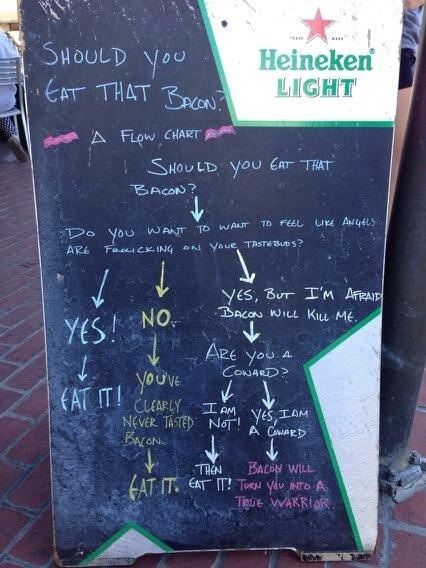 TRADE MARK
Heineken
LIGHT
SHOULD YOU
EAT THAT BACON?
A FLOW CHART
SHOULD YOU EAT THAT
BACON?
DO YOU WANT TO WANT TO FEEL LIKE ANGELS
ARE FROLICKING ON YOUR TASTEBUDS?
YES!
EAT IT!
NO..
YOU'VE
CLEARLY
NEVER TASTED
BACON..
EAT IT.
YES, BUT I'M AFRAID
BACON WILL KILL ME.
ARE YOU A
COWARD?
I AM
NOT!
THEN
EAT IT!
YES, I AM
A COWARD
BACON WILL
TURN YOU INTO A
TRUE WARRIOR.